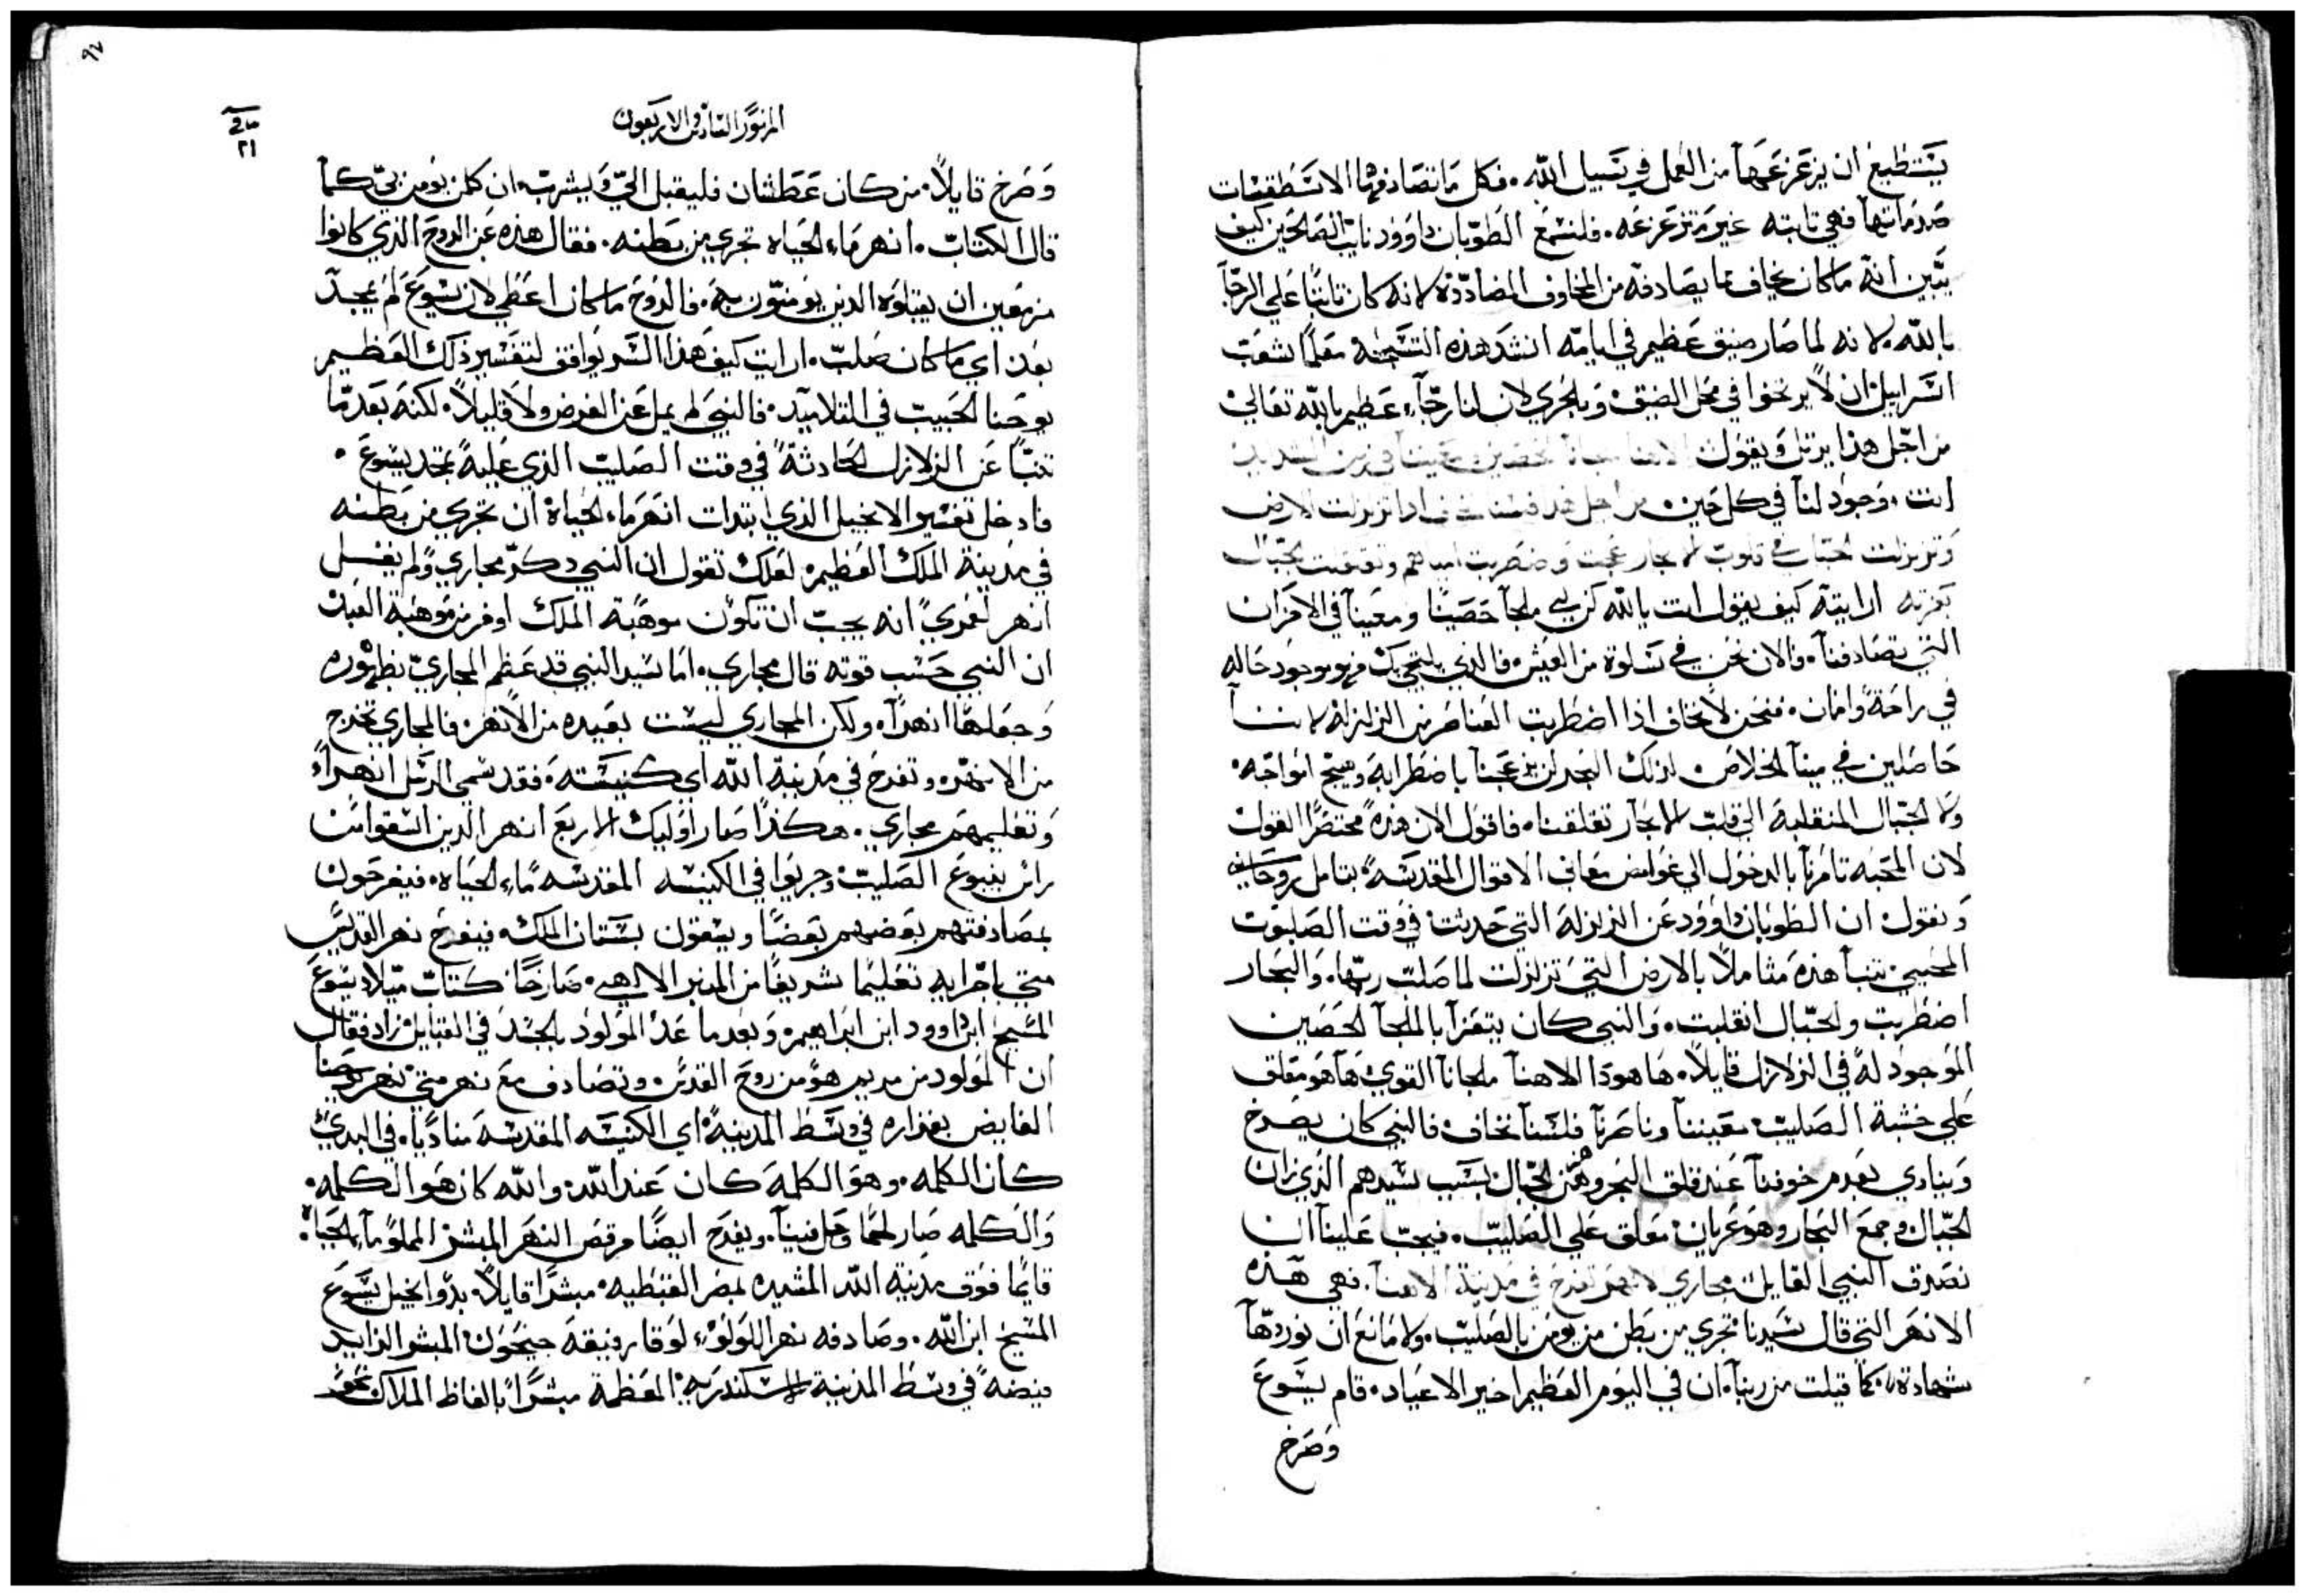 يستطيع ان يزعزعها من العمل في سبيل الله. فكل ما تصادفها الاسطقسات
صدماتها فهي ثابته غير متزعزعه. فلنسمع الطوبان داوود نايب الصالحين كيف
يبين انه ما كان يخاف مما يصادفه من المخاوف المضاددة لانه كان ثابتًا علي الرجآ
بالله. لانه لما صار ضيق عظيم في ايامه انشد هذه التسبحة معلمًا شعب
اسراييل ان لا يرتخوا في محل الضيق وبالحري لان لنا رجآء عظيم بالله تعالي
من اجل هذا يرتل ويقول الاهنا ملجانا الحصين ومعيننا في حين الشدايد
انت موجود لنا في كل حين. من اجل هذا فلسنا نخاف اذا تزلزلت الارض
وتزلزلت الجبال في قلوب الابحار عجت واضطربت امياههم وتقعقعت الجبال
بعزته ارايته كيف يقول انت يالله كن لي ملجآ حصينًا ومعينآ في الاحزان
التي تصادفنآ. والان نحن في سلوة من العيش. فالذي يلتجي بك فهو موجود حاله
في راحة وامان. فنحن لا نخاف اذا اضطربت العناصر من الزلزلة لاننــآ
حاصلين في مينآ الخلاص. لذلك البحر لن يزعجنآ باضطرابه وهيج امواجه.
ولا الجبال المنقلبة الي قلب الابحار تقلقنا. فاقول الان هذه مختصرًا القول
لان المحبه تامرنآ بالدخول الي غوامض معاني الاقوال المقدسة بتامل روحاني
ونقول ان الطوبان داوود عن الزلزلة التي حدثت في وقت الصلبوت
المحيي. تنبآ هذه متاملاً بالارض التي تزلزلت لما صلب ربها. والبحار
اضطربت والجبال انقلبت. والنبي كان يتعزآ بالملجآ الحصين
الموجود له في الزلازل قايلاً. ها هوذا الاهنآ ملجانآ القوي هآ هو معلق
علي خشبة الصليب معيننآ وناصرنآ فلسنآ نخاف. فالنبي كان يصرخ
وينادي بعدم خوفنآ عند قلق البحر وهز الجبال بسبب سيدهم الذي زان
الجبال وجمع البحار وهو عريان معلق علي الصليب. فيجب علينآ ان
نصدق النبي القايل مجاري الانهر تفرح في مدينة الاهنآ. فهي هذه
الانهر التي قال سيدنا تجري من بطن من يومن بالصليب. ولا مانع ان نوردهآ
شهادة. كما قيلت من ربنآ. ان في اليوم العظيم اخير الاعياد. قام يسوع
وصرخ
٩٧
المزمور الخامس والاربعون
٢١
وصرخ قايلاً. من كان عطشان فليقبل الي ويشرب. ان كلمن يومن بي كما
قال الكتاب. انهر ماء الحياه تجري من بطنه. فقال هذه عن الروح الذي كانوا
مزمعين ان يقبلوه الذين يومنون به. فالروح ما كان اعطي لان يسوع لم يمجد
بعد اي ما كان صلب. ارايت كيف هذا السر يوافق لتفسير ذلك العظيم
يوحنا الحبيب في التلاميد. فالنبي لم يمل عن الغرض ولا قليلاً. لكنه بعدما
تنبآ عن الزلازل الحادثة في وقت الصليب الذي عليه تمجد يسوع.
فادخل تفسير الانجيل الذي ابتدات انهر ماء الحياة ان تجري من بطنه
في مدينة الملك العظيم. لعلك تقول ان النبي دكر مجاري ولم يقل
انهر لعمري انه يجب ان تكون موهبة الملك اوفر من موهبة العبد
ان النبي حسب قوته قال مجاري. اما سيد النبي قد عظم المجاري بظهوره
وجعلها انهرآ. ولكن المجاري ليست بعيده من الانهر. فالمجاري تخرج
من الانهر. وتفرح في مدينة الله اي كنيسته. فقد سمي الرسل انهرآ
وتعليمهم مجاري. هكذا صار اوليك الاربع انهر الذين استقوا من
راس ينبوع الصليب. وجريوا في الكنيسه المقدسه ماء الحياه. فيفرحون
بمصادفتهم بعضهم بعضًا ويسقون بستان الملك. فيفرح نهر القديس
متي باجرايه تعليما شريفًا من المنبر الالاهي. صارخًا كتاب ميلاد يسوع
المسيح ابن داوود ابن ابراهيم. وبعدما عد المولود بالجسد في القبايل زاد فقال
ان المولود من مريم هو من روح القدس. وتصادف مع نهر متي نهر يوحنا
الفايض بغزاره في وسط المدينة اي الكنيسه المقدسه مناديًا. في البدي
كان الكلمه. وهو الكلمة كان عند الله. والله كان هو الكلمه.
والكلمه صار لحمًا وحل فينآ. ويفرح ايضًا مرقص النهر المبشر المملو مآء الحياة.
قايمًا فوق مدينة الله المشيده لمصر القبطيه. مبشرًا قايلاً. بدو انجيل يسوع
المسيح ابن الله. وصادفه نهر اللولو لوقا رفيقه جيحون المبشر الزايد
فيضه في وسط المدينة الاسكندريه المعظمة مبشرًا بالفاظ الملاك نحو